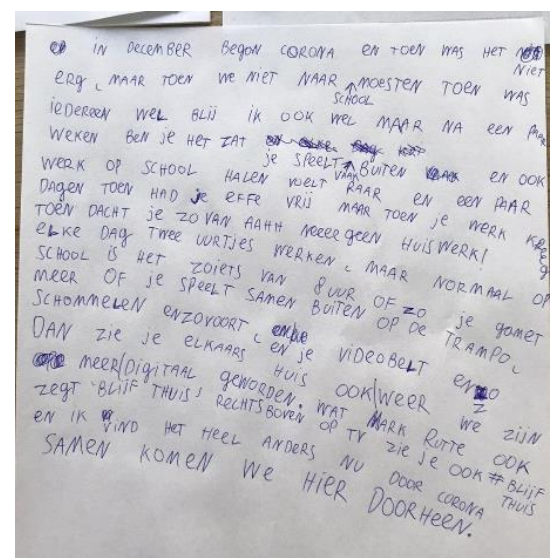 IN DECEMBER BEGON CORONA EN TOEN WAS HET NIET
ERG, MAAR TOEN WE NIET NAAR SCHOOL MOESTEN TOEN WAS
IEDEREEN WEL BLIJ IK OOK WEL MAAR NA EEN PAAR
WEKEN BEN JE HET ZAT JE SPEELT VAAK BUITEN EN OOK
WERK OP SCHOOL HALEN VOELT RAAR EN EEN PAAR
DAGEN TOEN HAD JE EFFE VRIJ MAAR TOEN JE WERK KREEG
TOEN DACHT JE ZO VAN AAHH NEEE GEEN HUISWERK!
ELKE DAG TWEE UURTJES WERKEN, MAAR NORMAAL OP
SCHOOL IS HET ZOIETS VAN 8 UUR OF ZO JE GAMET
MEER OF JE SPEELT SAMEN BUITEN OP DE TRAMPO,
SCHOMMELEN ENZOVOORT, EN JE VIDEOBELT ENZO
DAN ZIE JE ELKAARS HUIS OOK WEER WE ZIJN
MEER DIGITAAL GEWORDEN. WAT MARK RUTTE OOK
ZEGT 'BLIJF THUIS' RECHTSBOVEN OP TV ZIE JE OOK #BLIJF THUIS
EN IK VIND HET HEEL ANDERS NU DOOR CORONA
SAMEN KOMEN WE HIER DOORHEEN.